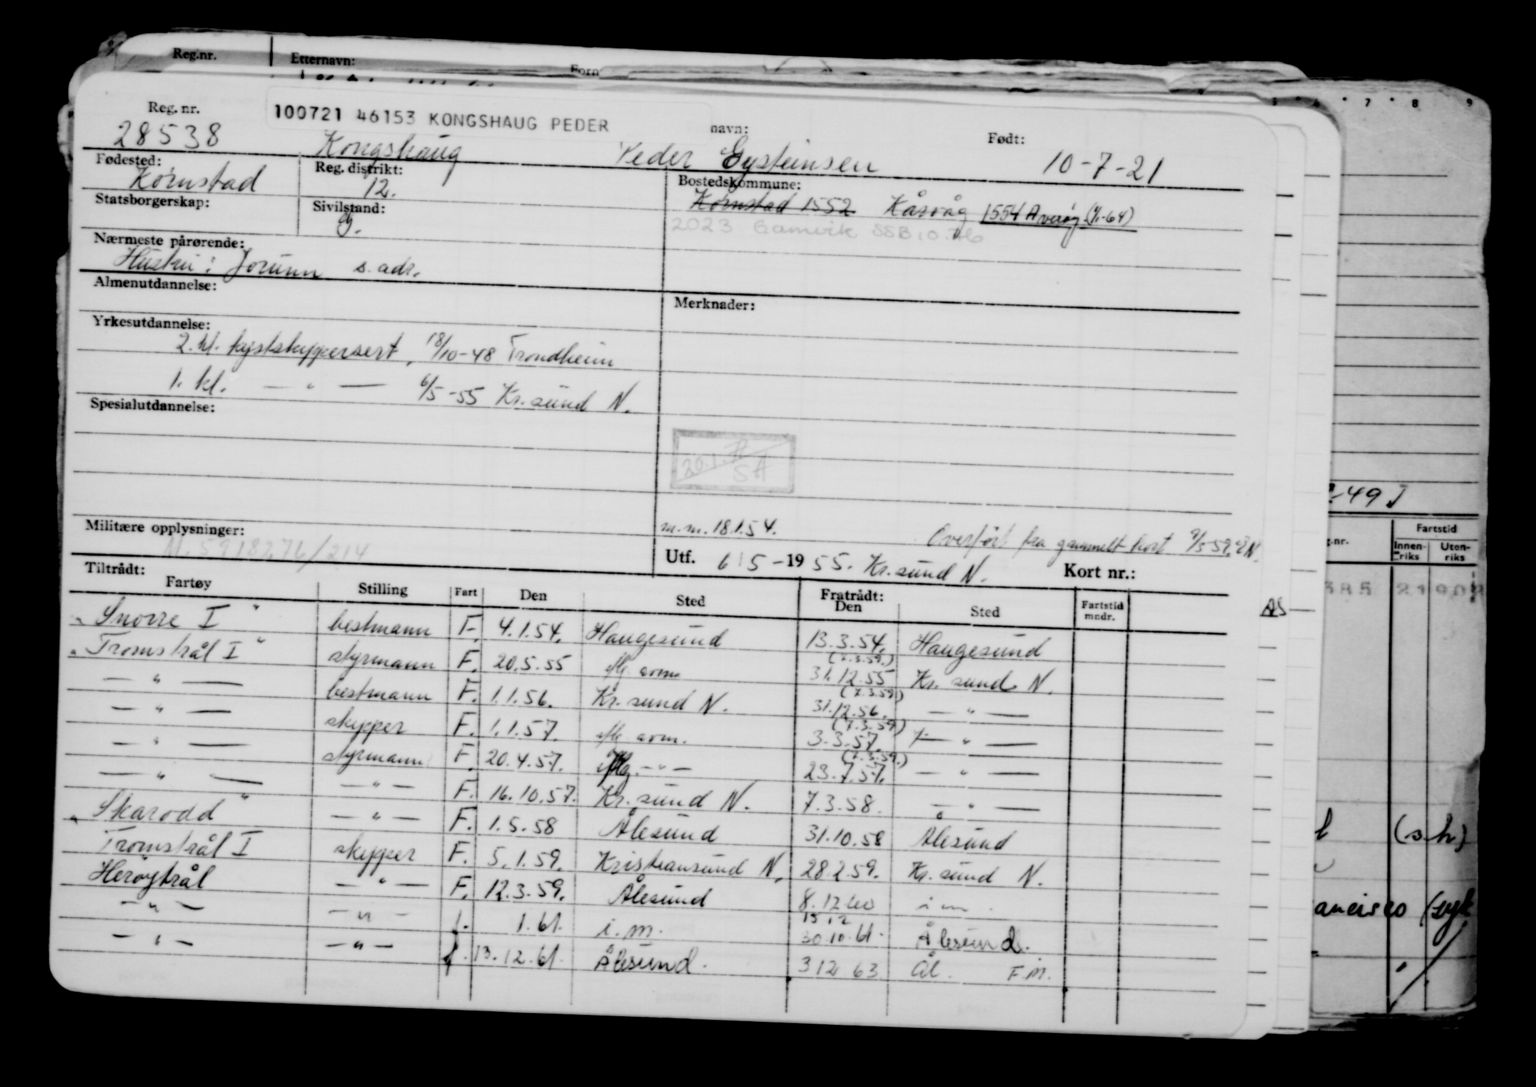 Reg.nr. Etternavn: Forn
Reg. nr. 100721 46153 KONGSHAUG PEDER navn: Født:
28538 Kongshaug Peder Eysteinsen 10-7-21
Fødested: Reg. distrikt: Bostedskommune:
Kornstad 12. Kornstad 1552 Kårvåg 1554 Averøy (1/1-64)
Statsborgerskap: Sivilstand: 2023 Gamvik SSB 10.76
g.
Nærmeste pårørende:
Hustru: Jorunn s. adr.
Almenutdannelse: Merknader:
Yrkesutdannelse:
2. kl. kystskippersert. 18/10-48 Trondheim
1. kl. — " — 6/5-55 Kr.sund N.
Spesialutdannelse:
20.1.
SA
Militære opplysninger: m.m. 18.1.54. Overført fra gammelt kort
N. 5918276/214 Utf. 6/5-1955. Kr.sund N. Kort nr.:
Tiltrådt: Fratrådt:
Fartøy Stilling Fart Den Sted Den Sted Fartstid mndr.
"Snorre I" bestmann F. 4.1.54. Haugesund 13.3.54. Haugesund
"Tromstrål I" styrmann F. 20.5.55 (7.3.59.) 31.12.55 Kr. sund N.
— " — bestmann F. 1.1.56. Kr. sund N. (7.3.59) 31.12.56. — " —
— " — skipper F. 1.1.57. (7.3.59) 3.3.57. — " —
— " — styrmann F. 20.4.57. — " — (7.3.59.) 23.7.57. — " —
— " — — " — F. 16.10.57. Kr. sund N. 7.3.58. — " —
"Skarodd" — " — F. 1.5.58 Ålesund 31.10.58 Ålesund
Tromstrål I skipper F. 5.1.59. Kristiansund N. 28.2.59. Kr. sund N.
Herøytrål — " — F. 12.3.59. Ålesund 8.12.60 i m.
— " — — " — f. 1.61. i.m. 30.10.61. Ålesund.
— " — — " — f. 13.12.61. Ålesund. 3 12 63 Ål. F.M.
-49
g.nr. Fartstid
Innenriks Utenriks
385
AS
(s.h)
ancisco